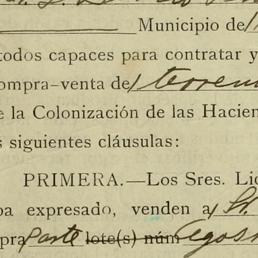 Municipio de
todos capaces para contratar y
ompra-venta de terreno
e la Colonización de las Hacien
s siguientes cláusulas:
PRIMERA.—Los Sres. Lic
ba expresado, venden a St.
pra parte lote(s) núm